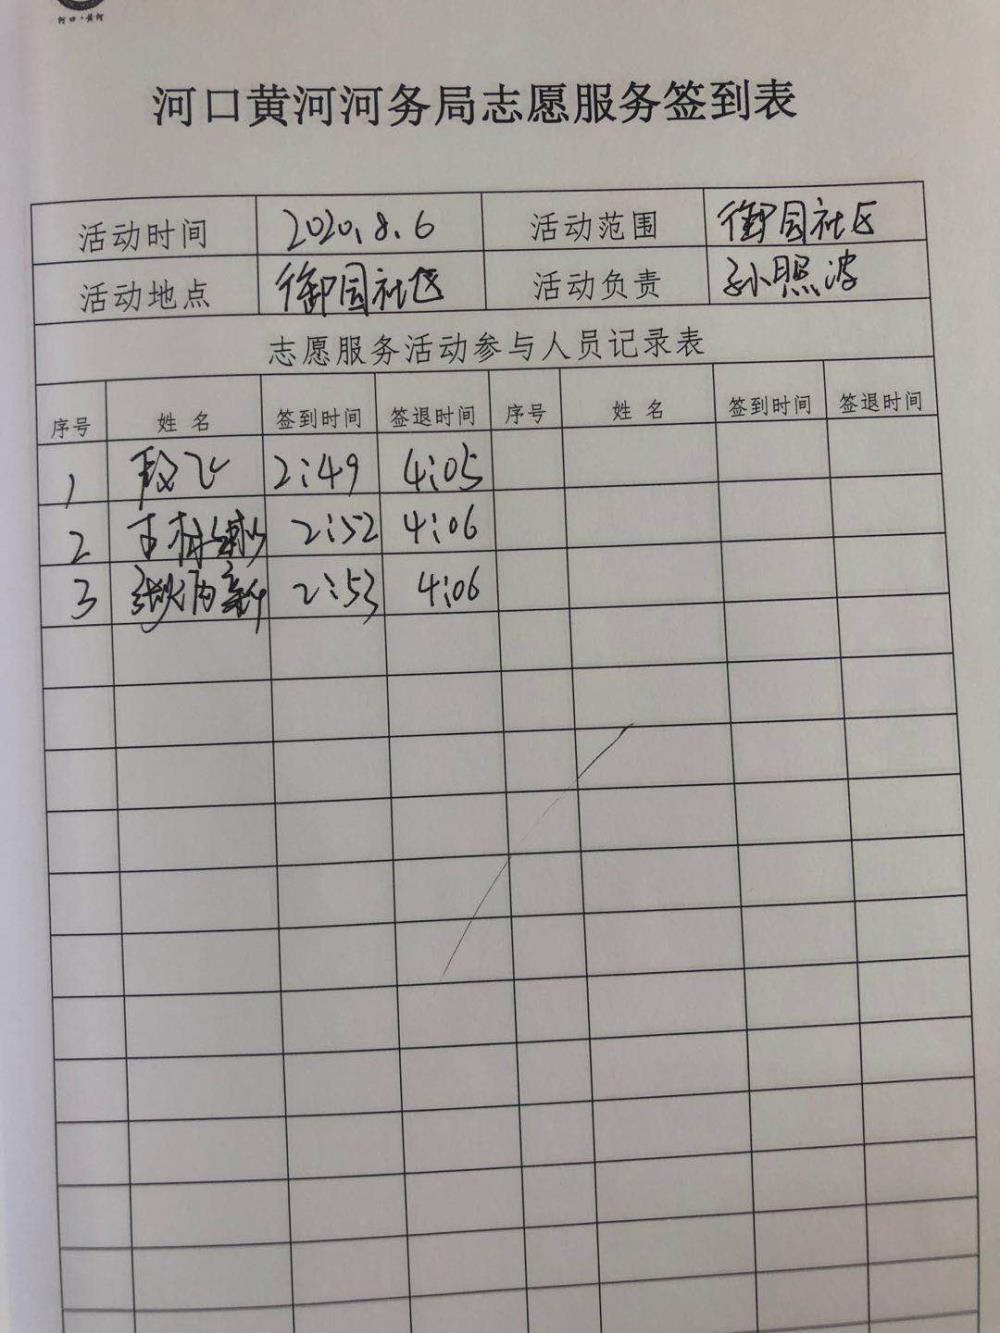 河口·黄河
河口黄河河务局志愿服务签到表
活动时间 2020.8.6 活动范围 御园社区
活动地点 御园社区 活动负责 孙照波
志愿服务活动参与人员记录表
序号 姓名 签到时间 签退时间 序号 姓名 签到时间 签退时间
1 段飞 2:49 4:05
2 2:52 4:06
3 2:53 4:06